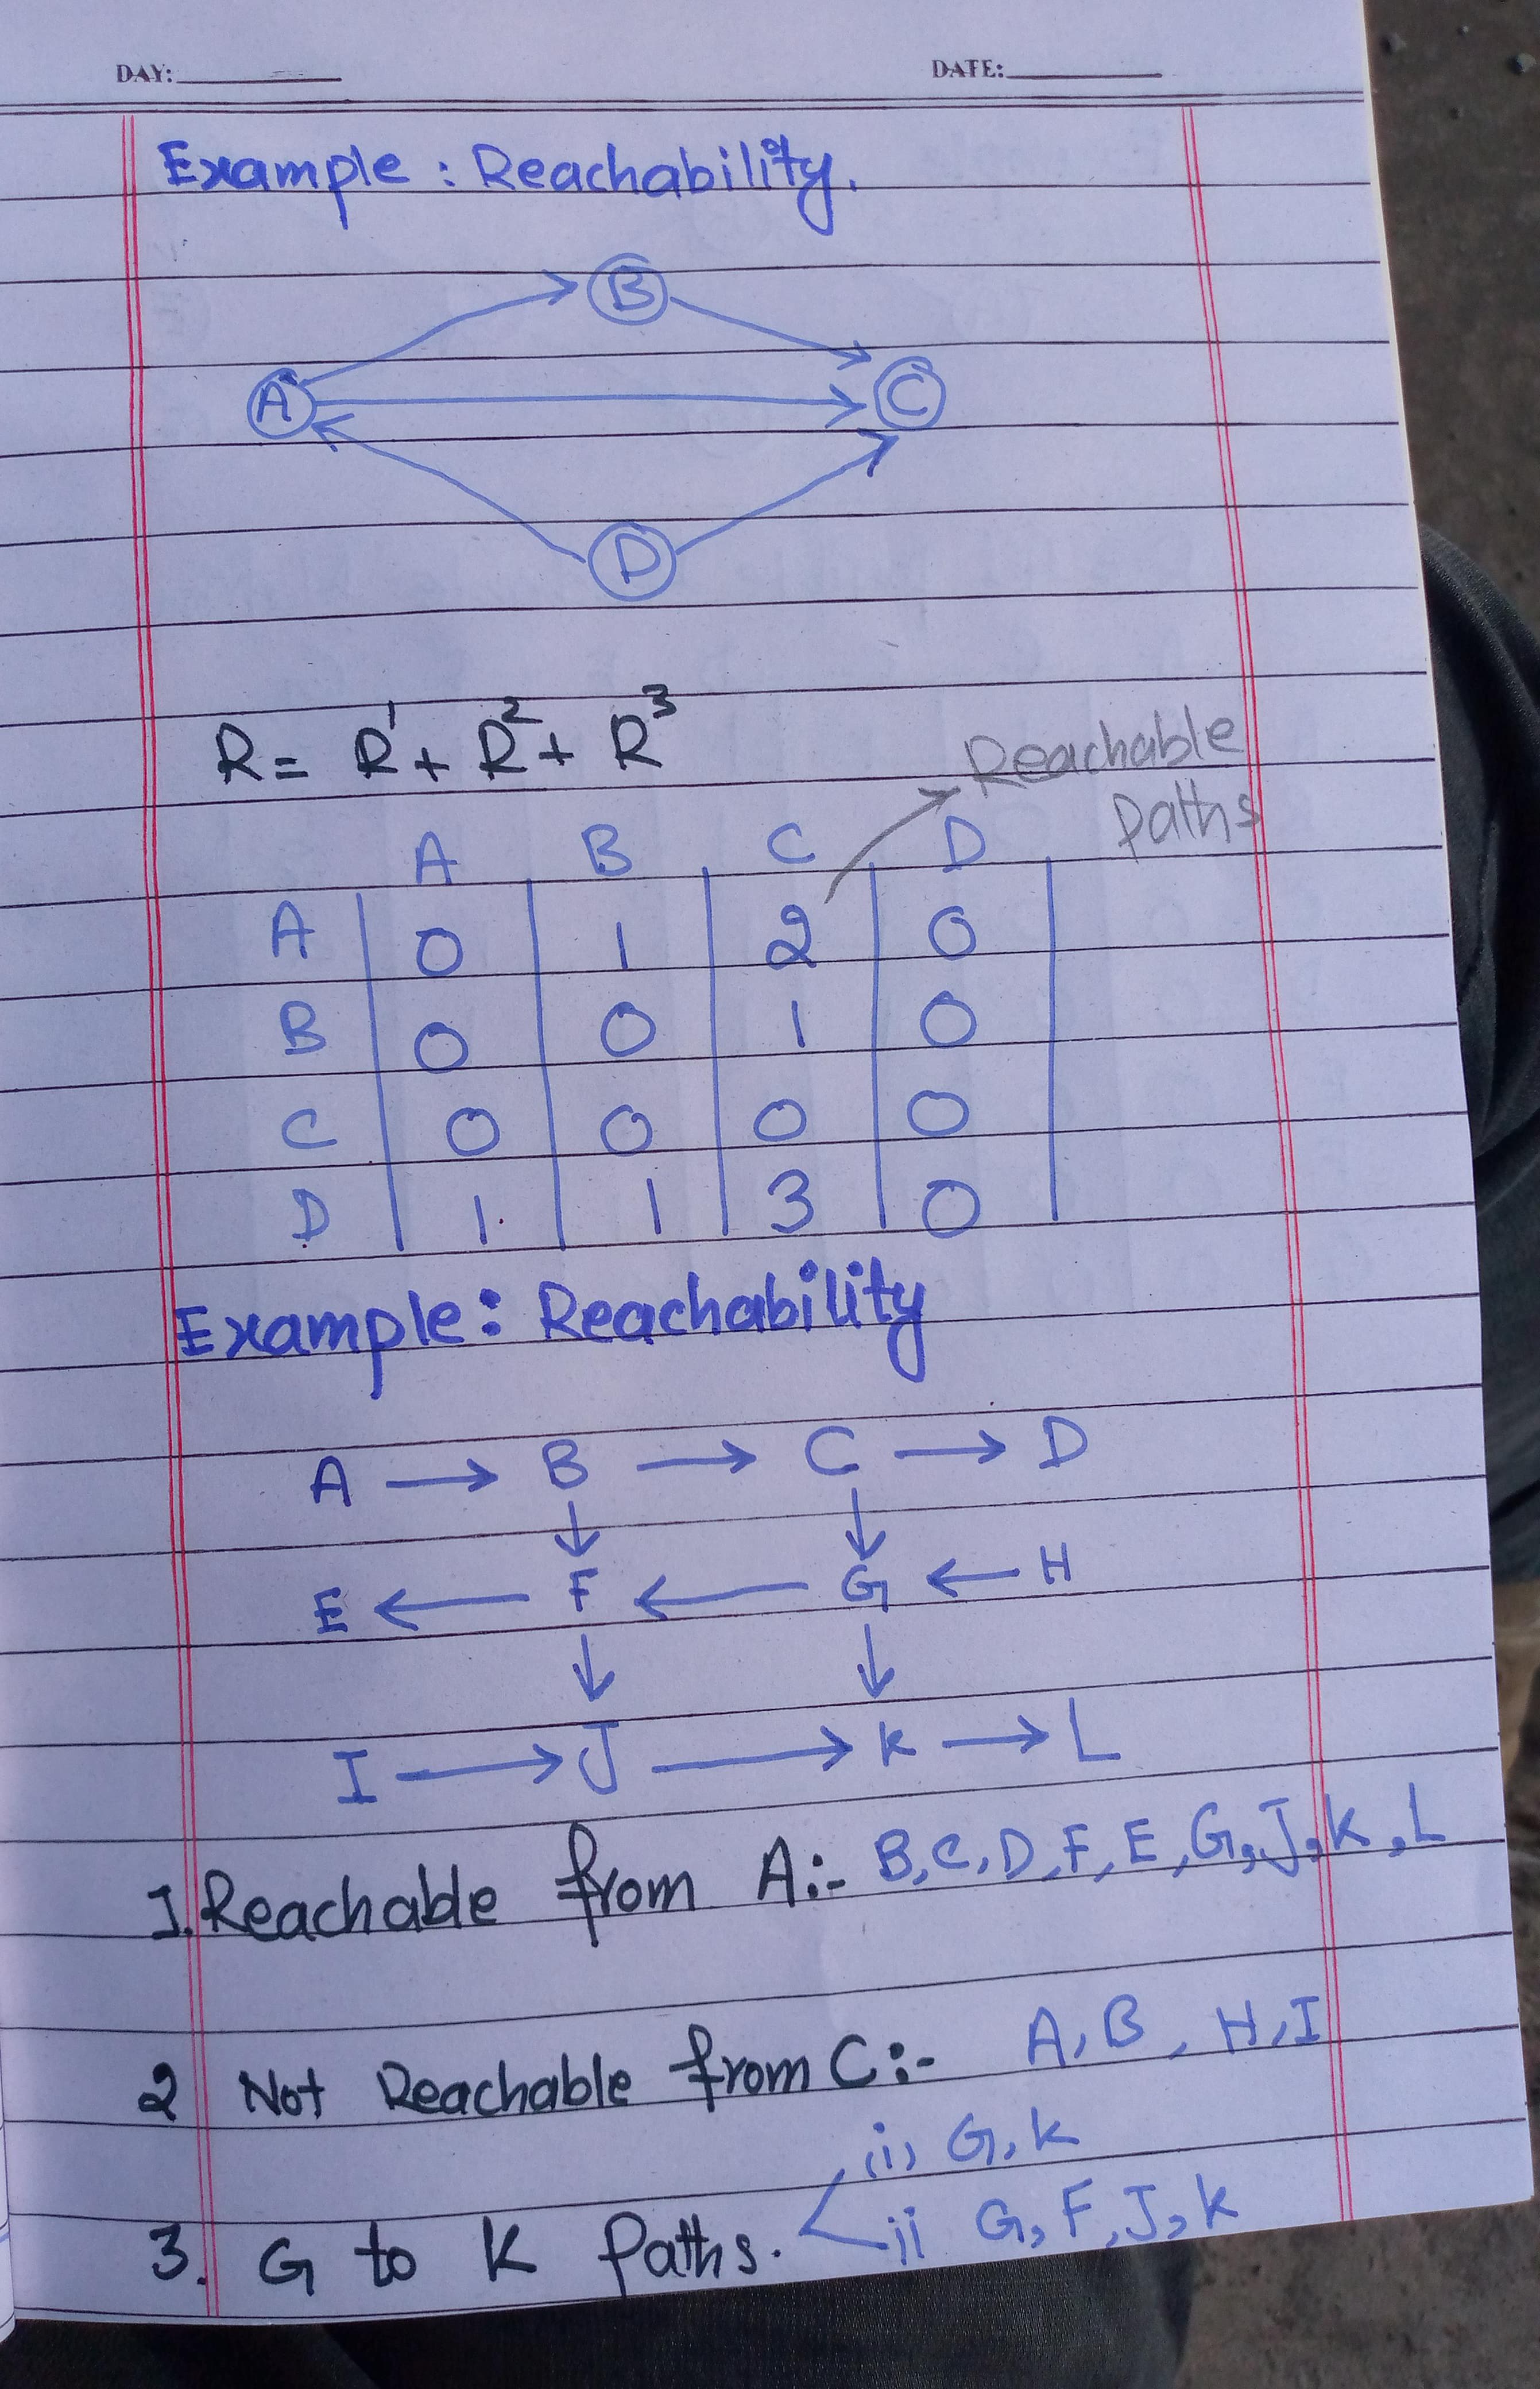 DAY: DATE:
Example : Reachability.
B
A C
D
R = R¹ + R² + R³
Reachable
Paths
A B C D
A 0 1 2 0
B 0 0 1 0
C 0 0 0 0
D 1 1 3 0
Example: Reachability
A → B → C → D
↓ ↓
E ← F ← G ← H
↓ ↓
I → J → K → L
1. Reachable from A:- B, C, D, F, E, G, J, K, L
2 Not Reachable from C:- A, B, H, I
(i) G, K
3. G to K Paths. ii G, F, J, K